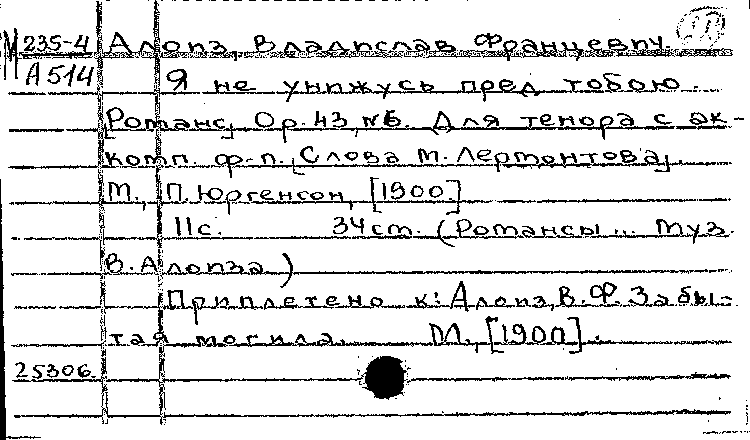 235-4 Алоиз, Владислав Францевич.
А514 Я не унижусь пред тобою.
[Романс], Op. 43, №6. Для тенора с ак-
комп. ф-п. [Слова М. Лермонтова].
М., П. Юргенсон, [1900]
11с. 34см. (Романсы... муз.
В. Алоиза)
Приплетено к: Алоиз, В. Ф. Забы-
тая могила. М., [1900].
25306.